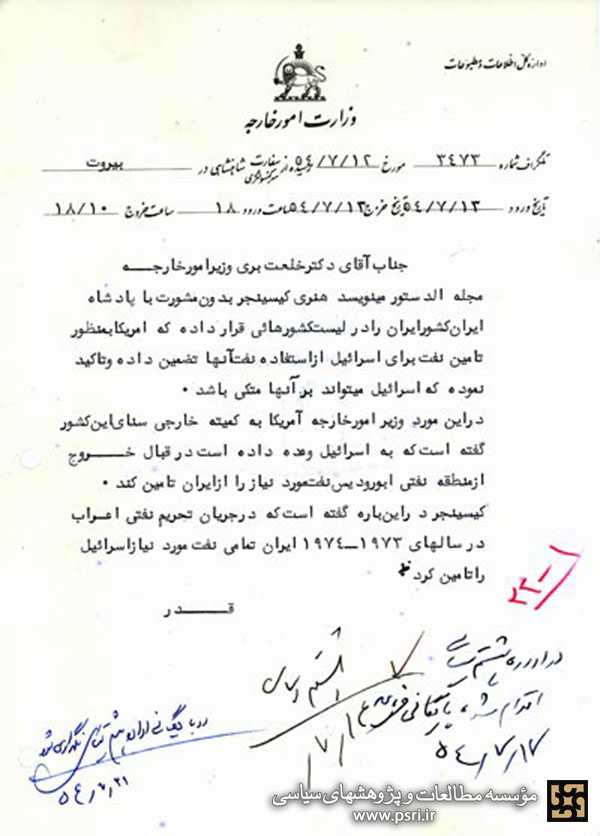 اداره کل اطلاعات و مطبوعات
وزارت امور خارجه
تلگراف شماره ۳۴۷۳ مورخ ۵۴/۷/۱۲ رسیده از سفارت شاهنشاهی در بیروت
سرکنسولگری
تاریخ ورود ۵۴/۷/۱۳ تاریخ خروج ۵۴/۷/۱۳ ساعت ورود ۱۸ ساعت خروج ۱۸/۱۰
جناب آقای دکتر خلعت بری وزیر امور خارجه
مجله الدستور مینویسد هنری کیسینجر بدون مشورت با پادشاه
ایران کشور ایران را در لیست کشورهائی قرار داده که امریکا بمنظور
تامین نفت برای اسرائیل از استفاده نفت آنها تضمین داده و تاکید
نموده که اسرائیل میتواند بر آنها متکی باشد .
در این مورد وزیر امور خارجه آمریکا به کمیته خارجی سنای این کشور
گفته است که به اسرائیل وعده داده است در قبال خروج
از منطقه نفتی ابورودیس نفت مورد نیاز را از ایران تامین کند .
کیسینجر در این باره گفته است که در جریان تحریم نفتی اعراب
در سالهای ۱۹۷۳ــ۱۹۷۴ ایران تمامی نفت مورد نیاز اسرائیل
را تامین کرد
قدر
۲۲-۱
در اداره هشتم سیاسی
اقدام شد بایگانی
۵۴/۷/۱۷
هشتم سیاسی
۵۴/۷/۲۱
مؤسسه مطالعات و پژوهشهای سیاسی
www.psri.ir